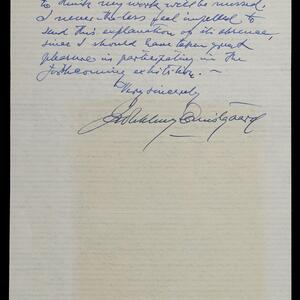 to think my work will be missed.
I never-the-less feel impelled to
send this explanation of its absence,
since I should have taken great
pleasure in participating in the
forthcoming exhibition. —
Very sincerely
Quistgaard